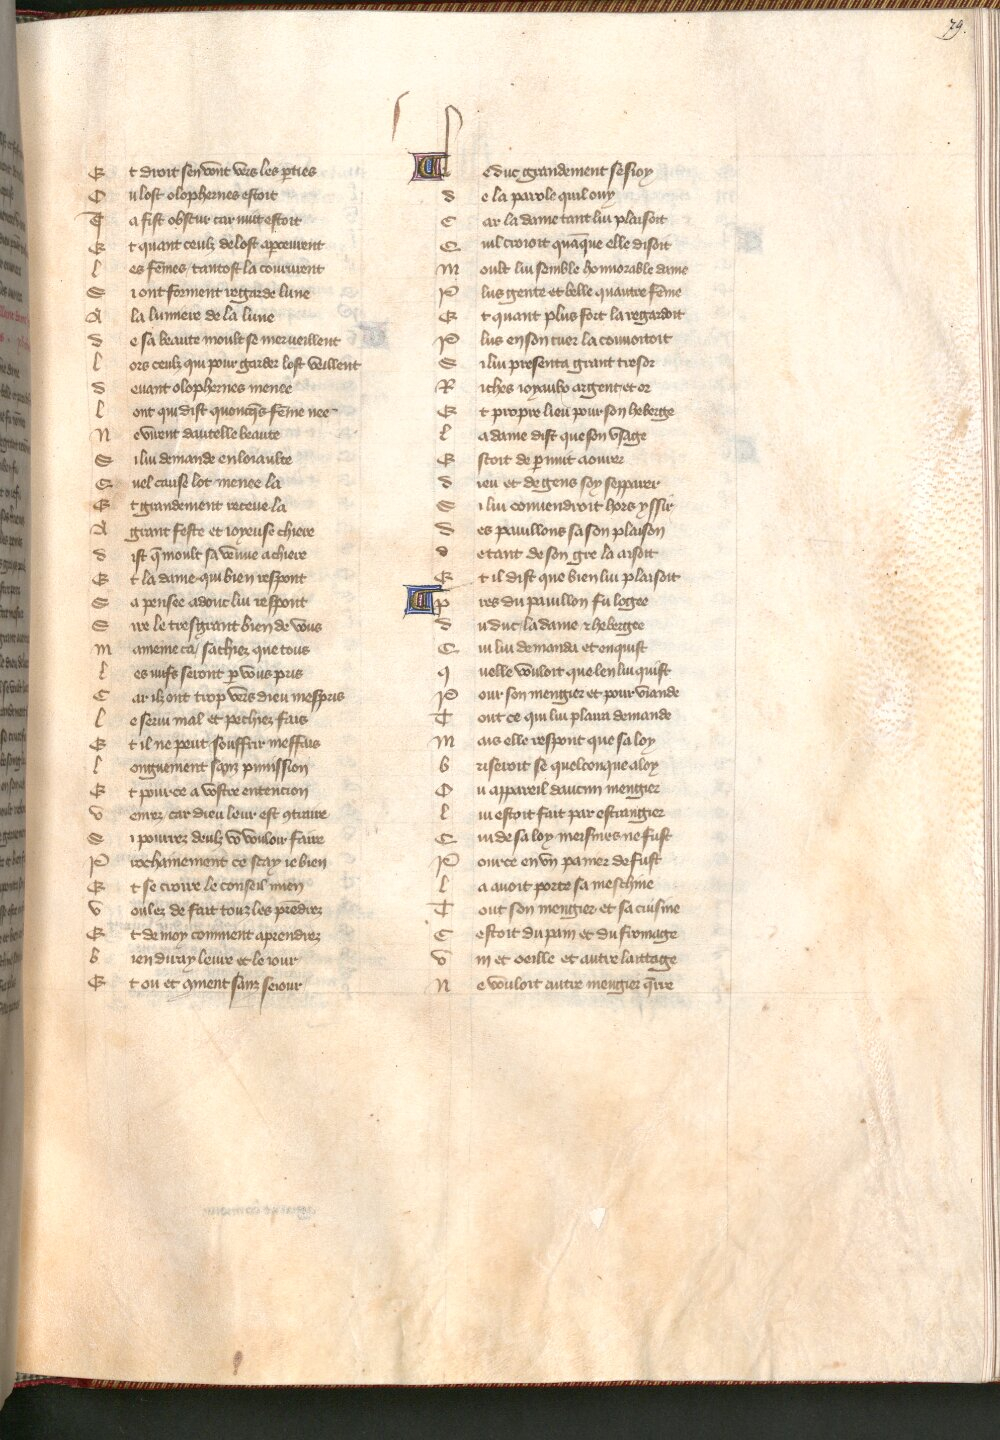 79.
Et droit sen vont vers les p̄ties
Ou lost olophernes estoit
Ta fist obscur car nuit estoit
Et quant ceulz de lost apceurent
les fēmes tantost la coururent
Si ont forment regarde lune
A la lumiere de la lune
de sa beaute moult se merveillent
lors ceulz qui pour garder lost veillent
devant olophernes menee
lont qui dist quonqs fēme nee
Ne virent dautelle beaute
Si lui demande en loiaulte
Quel cause lot menee la
Et grandement receue la
A grant feste et ioyeuse chiere
dist q̄ moult sa venue a chiere
Et la dame qui bien respont
Sa pensee adont lui respont
Sire le tresgrant bien de vous
mameine ca / sachiez que tous
les iuifs seront p vous pris
Car ilz ont trop vers dieu mespris
le servi mal et pechiez fais
Et il ne peut souffrir meffais
longuement sanz punission
Et pour ce a vostre entencion
venez car dieu leur est 9traire
Si pourrez deulz vo vouloir faire
Prochainement ce scay ie bien
Et se croire le conseil mien
voulez de fait touz les prēdrez
Et de moy comment aprendrez
bien diray leure et le iour
Et ou et 9ment sanz seiour
Le duc grandement sesioy
de la parole quil ouy
Car la dame tant lui plaisoit
Quil croioit quāque elle disoit
Moult lui semble honnorable dame
Plus gente et belle quautre fēme
Et quant plus fort la regardoit
Plus en son cuer la couuoitoit
Si lui presenta grant tresor
Riches ioyaulx argent et or
Et propre lieu pour son heberge
la dame dist que son usage
Estoit de p nuit aourer
dieu et de gens soy sepparer
Si lui convendroit hors yssir
des pavillons sa son plaison
de tant de son gre la aisoit
Et il dist que bien lui plaisoit
Apres du pavillon fu logee
du duc / la dame & hebergee
Cui lui demanda et enquist
quelle vouloit que len lui quist
Pour son mengier et pour viande
Tout ce qui lui plaira demande
Mais elle respont que sa loy
briseroit se quelconque aloy
Ou appareil daucun mengier
lui estoit fait par estrangier
Cui de sa loy meismes ne fust
Pour ce en un panier de fust
la avoit porte sa meschine
Tout son mengier et sa cuisine
Cestoit du pain et du fromage
vin et oeille et autre laittage
Ne vouloit autre mengier q̄rre